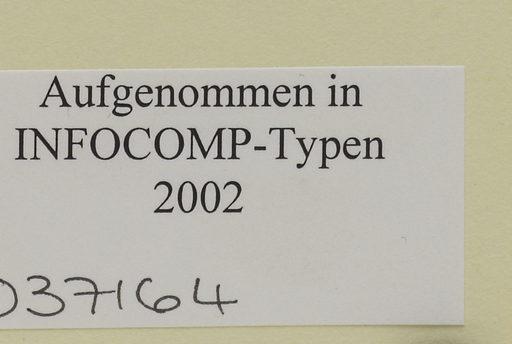 Aufgenommen in
INFOCOMP-Typen
2002
037164